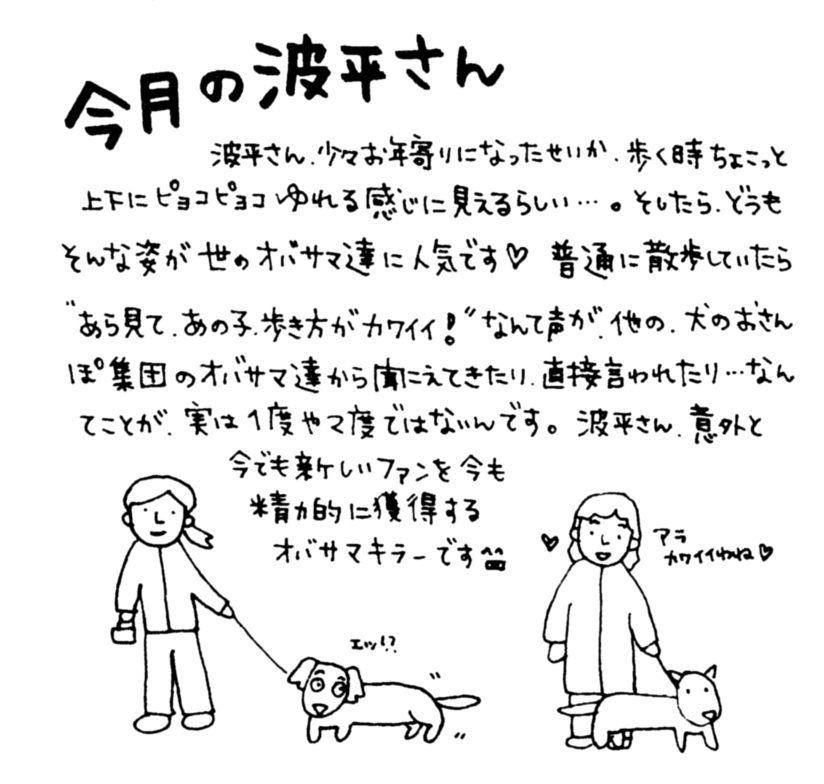 今月の波平さん
波平さん、少々お年寄りになったせいか、歩く時ちょこっと
上下にピョコピョコゆれる感じに見えるらしい…。そしたら、どうも
そんな姿が世のオバサマ達に人気です♡ 普通に散歩していたら
"あら見て、あの子、歩き方がカワイイ!"なんて声が、他の、犬のおさん
ぽ集団のオバサマ達から聞こえてきたり、直接言われたり…なん
てことが、実は1度や2度ではないんです。波平さん、意外と
今でも新しいファンを今も
精力的に獲得する
オバサマキラーです
エッ!?
アラ
カワイイわね♡